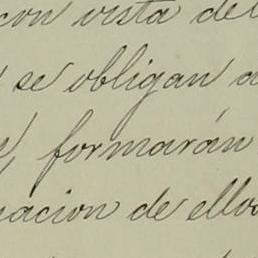 con vista del
se obligan a
formarán
uacion de ellos